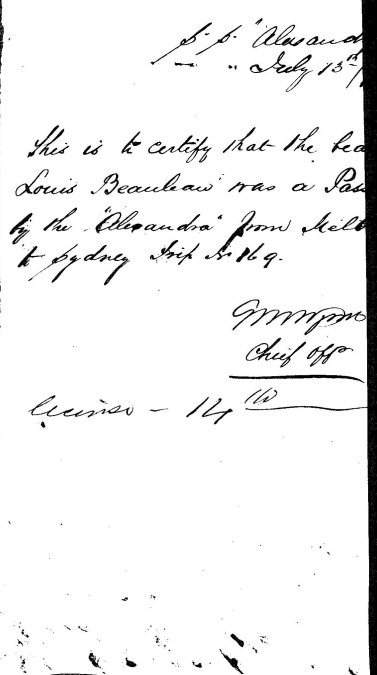 "Alexand
July 13th
This is to certify that the bea
Louis Beauleau was a Pass
by the "Alexandra" from Melb
to Sydney Trip No 69.
Chief Offr
14th